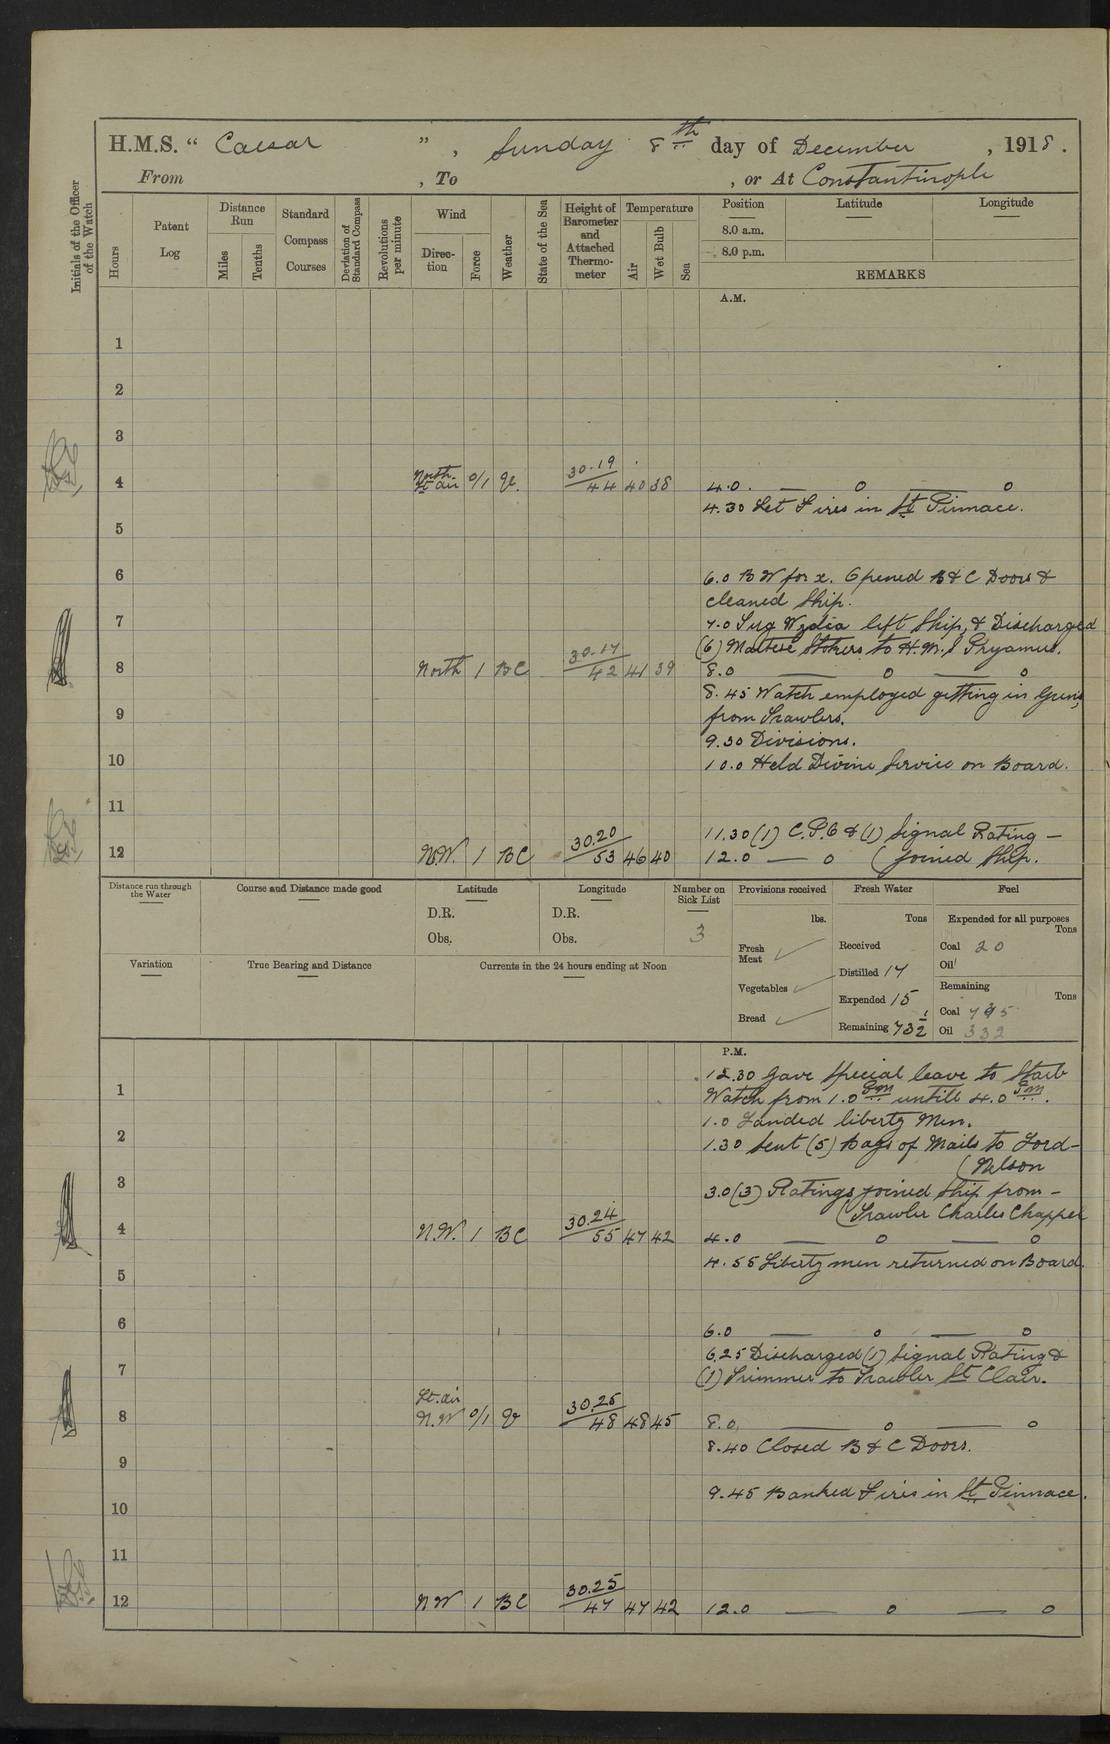 H.M.S. " Caesar " , Sunday 8th day of December , 1918 .
From , To , or At Constantinople
Initials of the Officer of the Watch
Hours
Patent Log
Distance Run
Miles
Tenths
Standard Compass Courses
Deviation of Standard Compass
Revolutions per minute
Wind
Direction
Force
Weather
State of the Sea
Height of Barometer and Attached Thermometer
Temperature
Air
Wet Bulb
Sea
Position Latitude Longitude
8.0 a.m.
8.0 p.m.
REMARKS
A.M.
1
2
3
4 North Lt air 0/1 30.19/44 40 38 4.0. — o — o
4.30 Let Fires in St Pinnace.
5
6 6.0 B W for x. Opened B & C Doors &
cleaned Ship.
7 7.0 left Ship, & Discharged
(6) Maltese Stokers to H.M.S Pryamus.
8 North 1 BC 30.17/42 41 39 8.0 — o — o
8.45 Watch employed getting in Guns,
9 from Trawlers.
9.30 Divisions.
10 10.0 Held Divine Service on Board.
11
11.30 (1) C.P.O & (1) Signal Rating —
12 N.W. 1 BC 30.20/53 46 40 12.0 — o (joined Ship.
Distance run through the Water
Course and Distance made good
Latitude
D.R.
Obs.
Longitude
D.R.
Obs.
Number on Sick List
3
Provisions received
lbs.
Fresh Meat
Vegetables
Bread
Fresh Water
Tons
Received
Distilled 17
Expended 15
Remaining 73½
Fuel
Expended for all purposes
Tons
Coal 20
Oil
Remaining
Tons
Coal
Oil 332
Variation
True Bearing and Distance
Currents in the 24 hours ending at Noon
P.M.
12.30 Gave Special leave to Starb
1 Watch from 1.0 Pm untill 4.0 Pm.
1.0 Landed liberty Men.
2 1.30 Sent (5) Bags of Mails to Lord —
(Nelson
3 3.0 (3) Ratings joined Ship from —
(Trawler Charles Chappel
4 N.W. 1 BC 30.24/55 47 42 4.0 — o — o
4.55 Liberty men returned on Board.
5
6 6.0 — o — o
6.25 Discharged (1) Signal Rating &
7 (1) Trimmer to Trawler St Clair.
8 Lt. air N.W 0/1 30.25/48 48 45 8.0 — o — o
8.40 Closed B & C Doors.
9
9.45 Banked Fires in St Pinnace.
10
11
12 NW 1 BC 30.25/47 47 42 12.0 — o — o